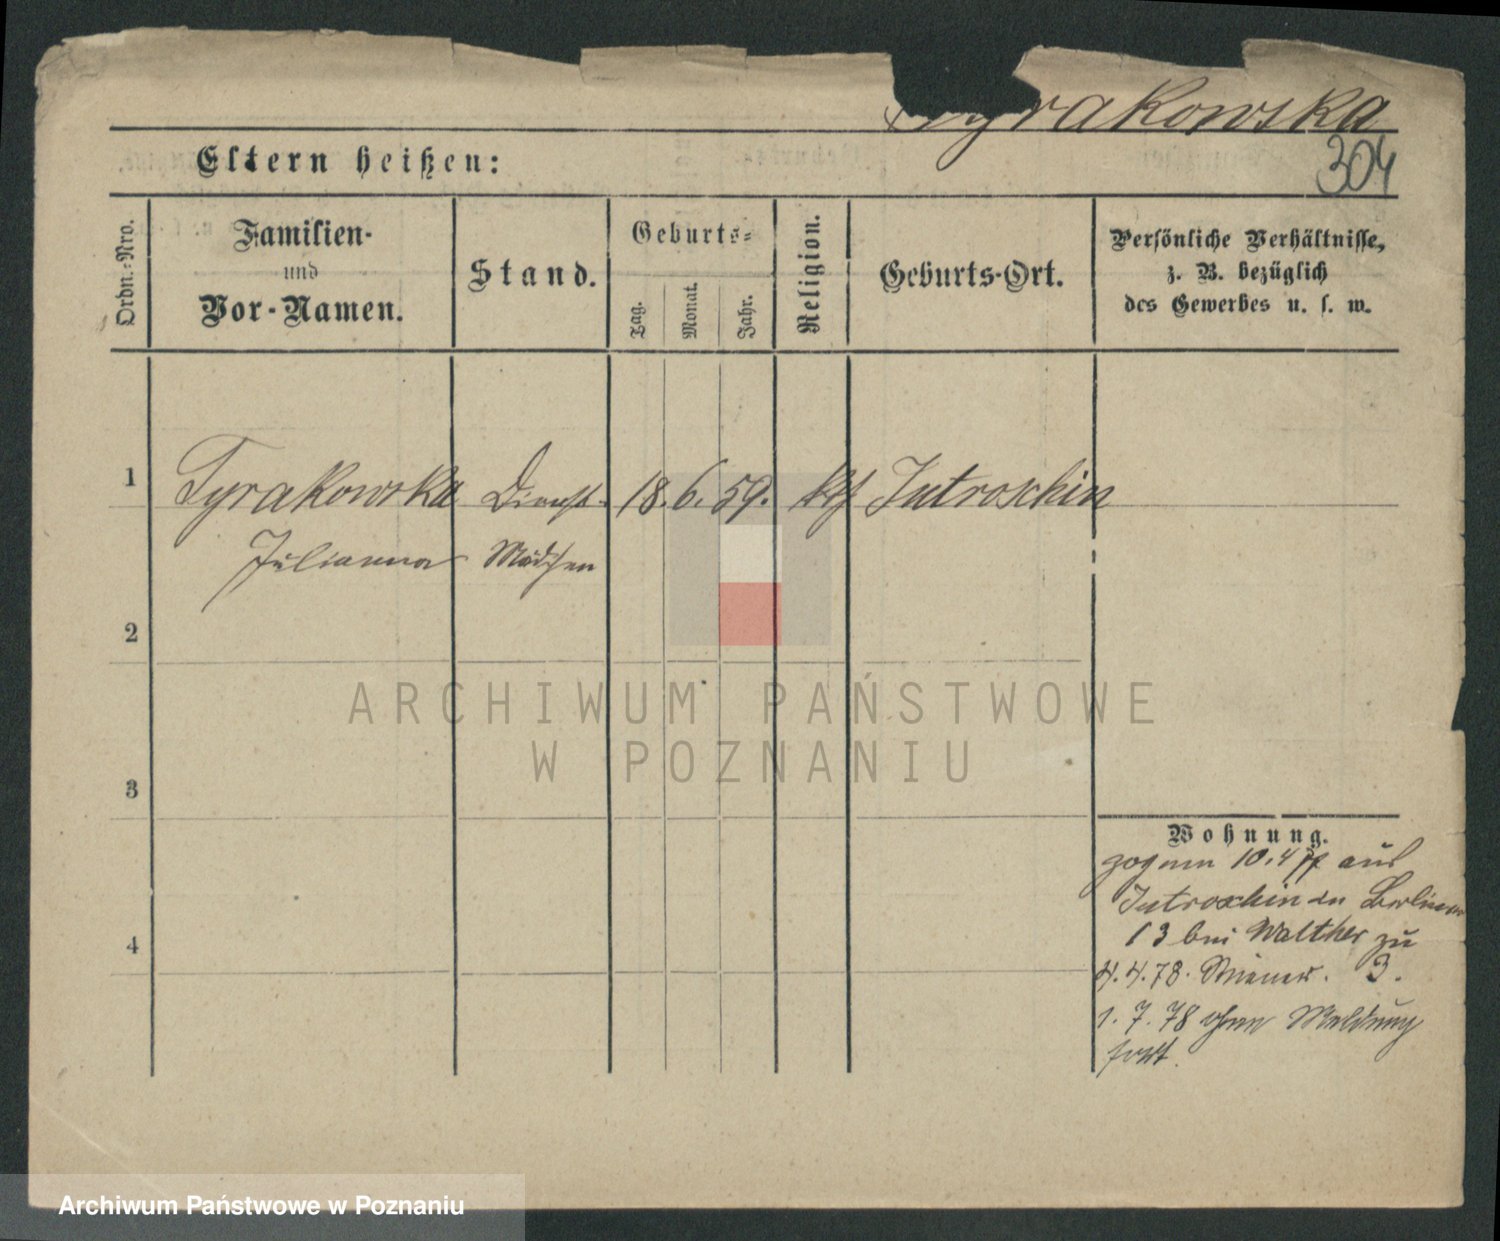 Tyrakowska
304
Eltern heißen:
Ordn.-Nro.
Familien-
und
Vor-Namen.
Stand.
Geburts-
Tag.
Monat.
Jahr.
Religion.
Geburts-Ort.
Persönliche Verhältnisse,
z. B. bezüglich
des Gewerbes u. s. w.
1
Tyrakowska Dienst- 18. 6. 59. kth Jutroschin
Julianna Mädchen
2
3
4
Wohnung.
zog am 10. 4 77 aus
Jutroschin in Berliner
13 bei Walther zu
4. 4. 78. 3.
1. 7. 78 ohne Meldung
fort.
ARCHIWUM PAŃSTWOWE
W POZNANIU
Archiwum Państwowe w Poznaniu